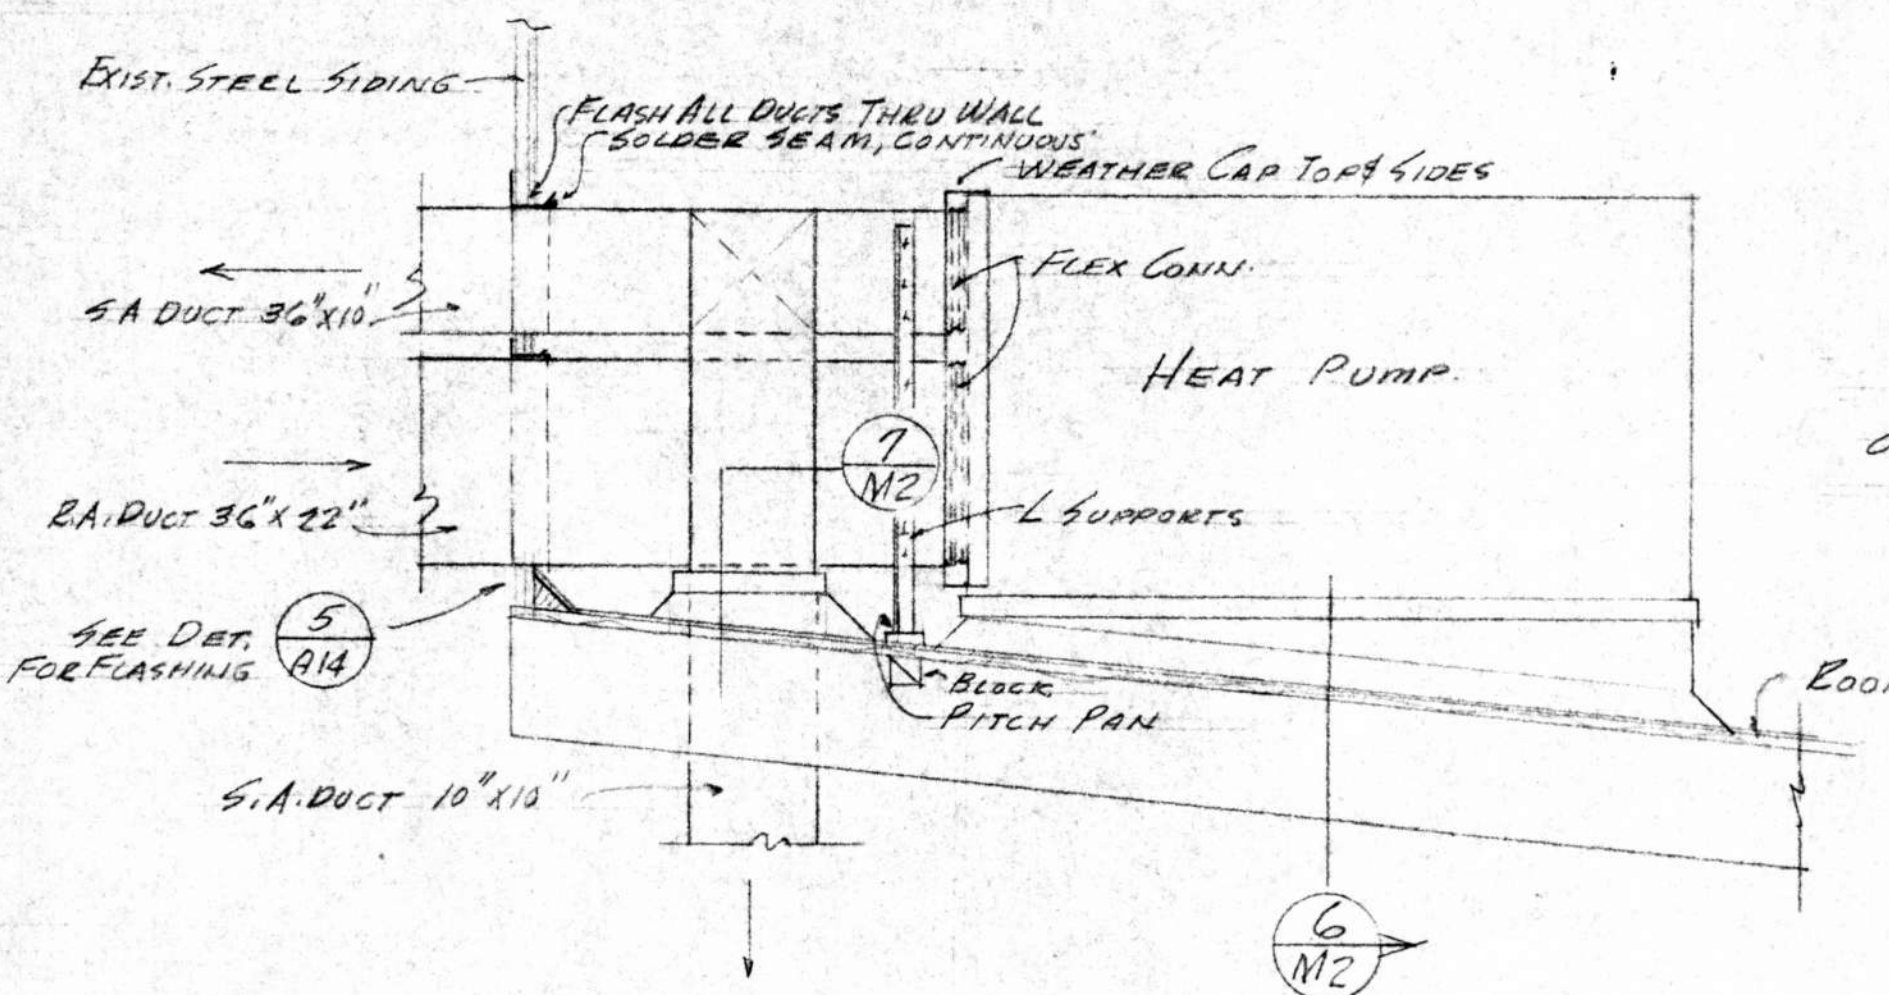 EXIST. STEEL SIDING
FLASH ALL DUCTS THRU WALL
SOLDER SEAM, CONTINUOUS
WEATHER CAP TOP & SIDES
FLEX CONN.
S A DUCT 36"X10"
HEAT PUMP.
7
M2
R.A. DUCT 36"X22"
L SUPPORTS
SEE DET.
FOR FLASHING
5
A14
BLOCK
PITCH PAN
S.A. DUCT 10"X10"
6
M2